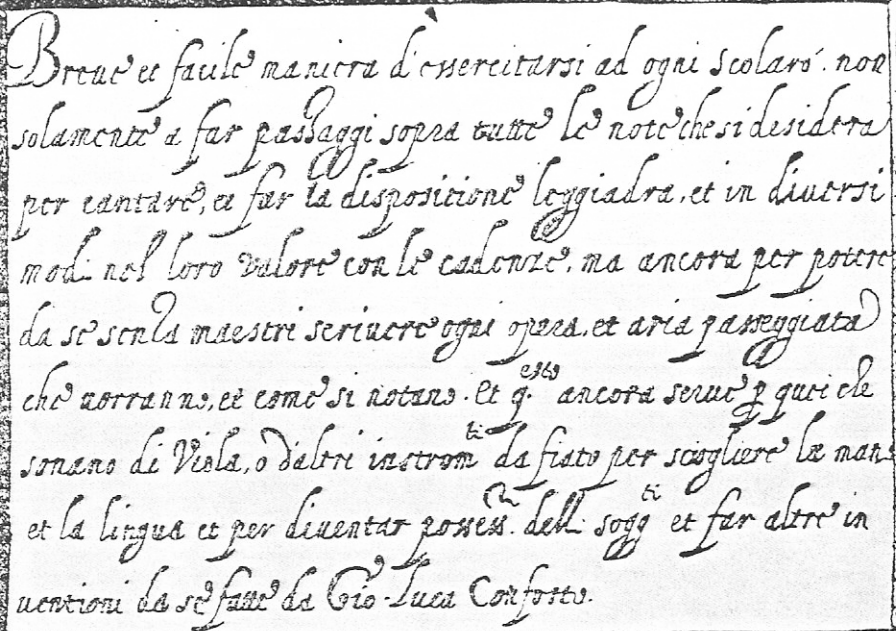 Breue et facile maniera d'essercitarsi ad ogni scolaro. non
solamente a far passaggi sopra tutte le note che si desidera
per cantare, et far la dispositione leggiadra, et in diuersi
modi nel loro valore con le cadenze, ma ancora per potere
da se senza maestri scriuere ogni opera, et aria passeggiata
che uorranno, et come si notano. Et q.esto ancora serue p quei che
sonano di Viola, o d'altri instromti da fiato per sciogliere la mano
et la lingua et per diuentar possess.r dell sogg.ti et far altre in
uentioni da se fatte da Gio. Luca Conforto.